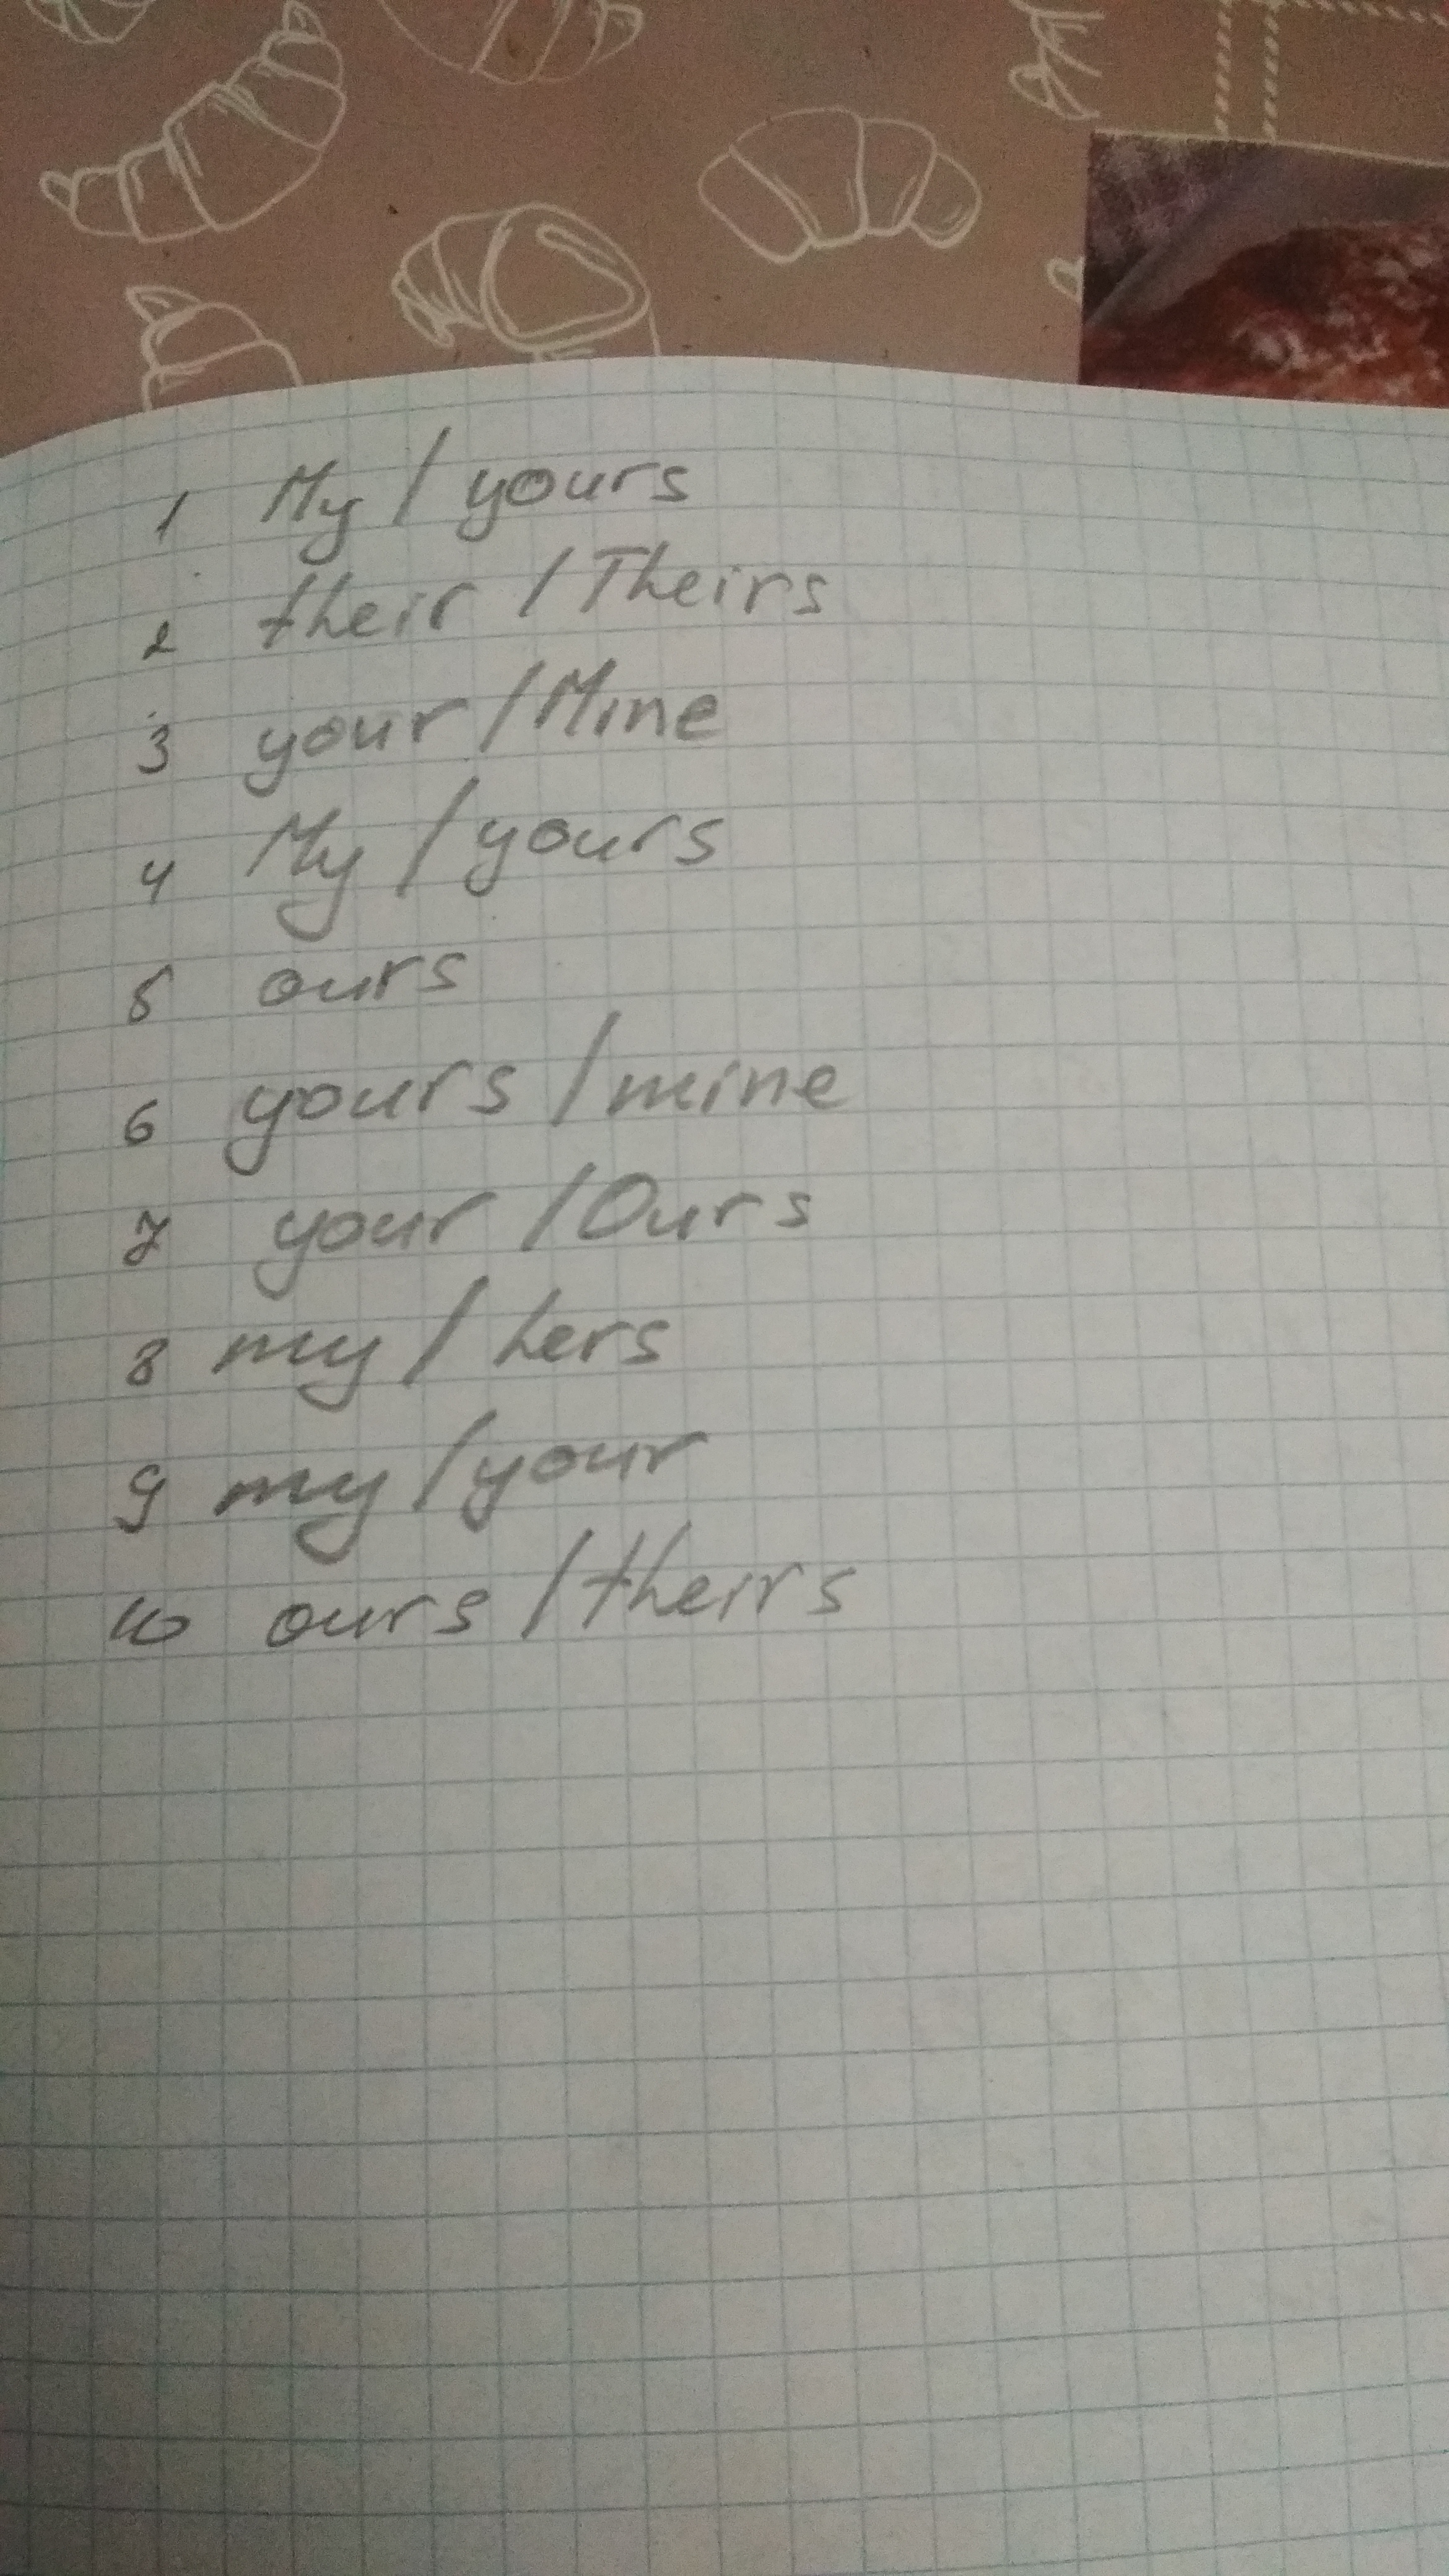 1 My / yours
2 their / Theirs
3 your / Mine
4 My / yours
5 ours
6 yours / mine
7 your / Ours
8 my / hers
9 my / your
10 ours / theirs